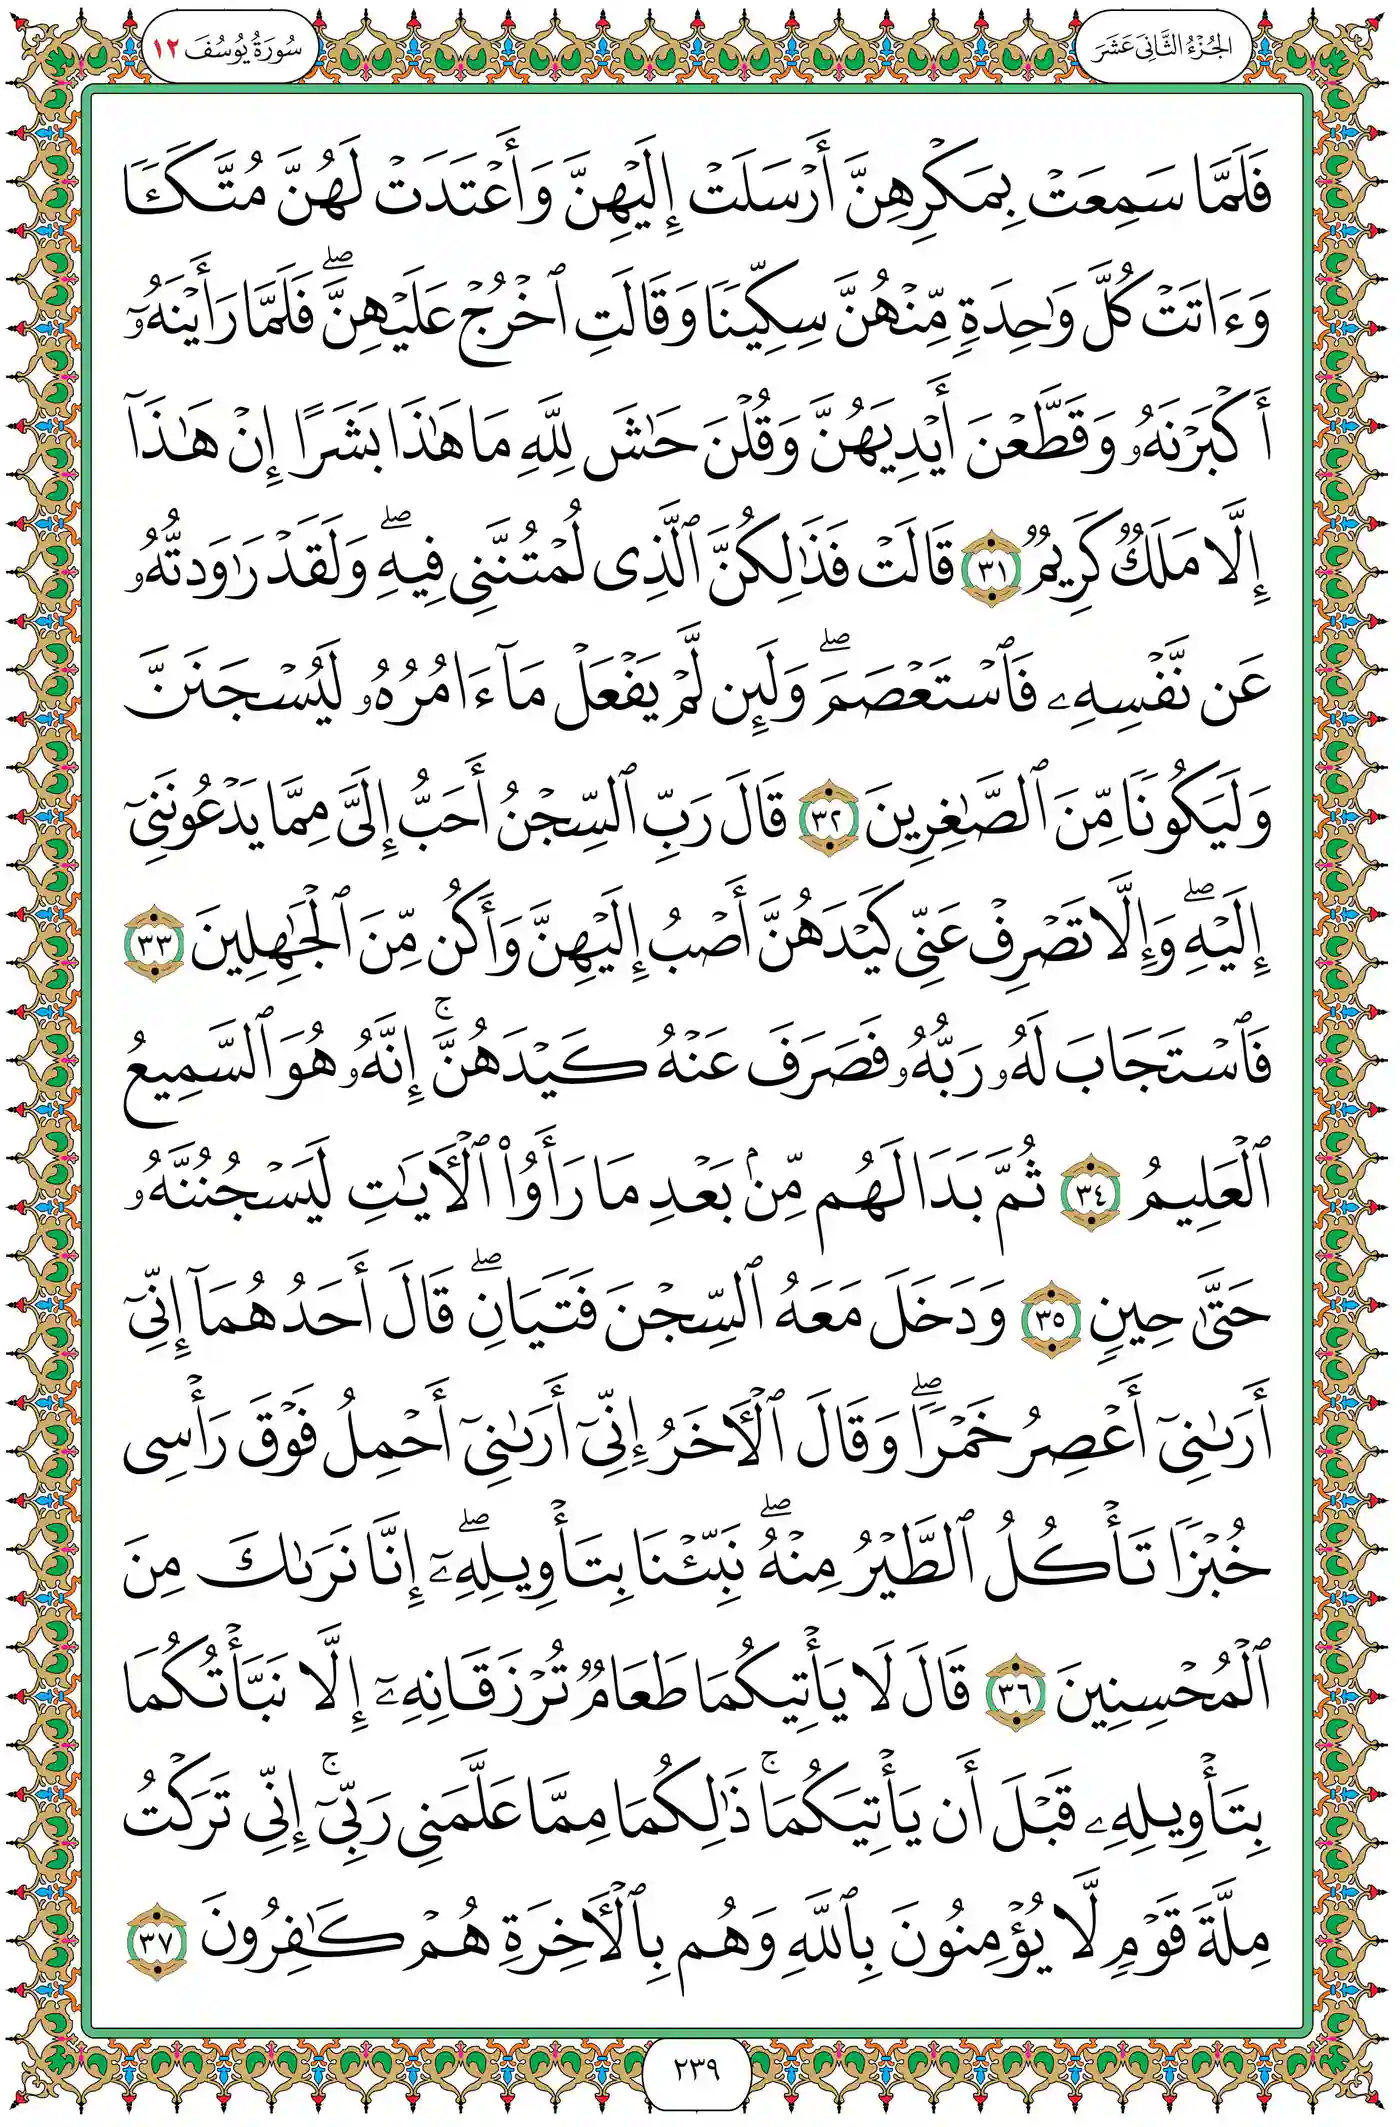 الجُزْءُ الثَّانِي عَشَرَ
سُورَةُ يُوسُفَ ١٢
فَلَمَّا سَمِعَتْ بِمَكْرِهِنَّ أَرْسَلَتْ إِلَيْهِنَّ وَأَعْتَدَتْ لَهُنَّ مُتَّكَـًٔا
وَءَاتَتْ كُلَّ وَٰحِدَةٍ مِّنْهُنَّ سِكِّينًا وَقَالَتِ ٱخْرُجْ عَلَيْهِنَّۖ فَلَمَّا رَأَيْنَهُۥٓ
أَكْبَرْنَهُۥ وَقَطَّعْنَ أَيْدِيَهُنَّ وَقُلْنَ حَٰشَ لِلَّهِ مَا هَٰذَا بَشَرًا إِنْ هَٰذَآ
إِلَّا مَلَكٌ كَرِيمٌ ٣١ قَالَتْ فَذَٰلِكُنَّ ٱلَّذِى لُمْتُنَّنِى فِيهِۖ وَلَقَدْ رَٰوَدتُّهُۥ
عَن نَّفْسِهِۦ فَٱسْتَعْصَمَۖ وَلَئِن لَّمْ يَفْعَلْ مَآ ءَامُرُهُۥ لَيُسْجَنَنَّ
وَلَيَكُونًا مِّنَ ٱلصَّٰغِرِينَ ٣٢ قَالَ رَبِّ ٱلسِّجْنُ أَحَبُّ إِلَىَّ مِمَّا يَدْعُونَنِىٓ
إِلَيْهِۖ وَإِلَّا تَصْرِفْ عَنِّى كَيْدَهُنَّ أَصْبُ إِلَيْهِنَّ وَأَكُن مِّنَ ٱلْجَٰهِلِينَ ٣٣
فَٱسْتَجَابَ لَهُۥ رَبُّهُۥ فَصَرَفَ عَنْهُ كَيْدَهُنَّۚ إِنَّهُۥ هُوَ ٱلسَّمِيعُ
ٱلْعَلِيمُ ٣٤ ثُمَّ بَدَا لَهُم مِّنۢ بَعْدِ مَا رَأَوُا۟ ٱلْـَٔايَٰتِ لَيَسْجُنُنَّهُۥ
حَتَّىٰ حِينٍ ٣٥ وَدَخَلَ مَعَهُ ٱلسِّجْنَ فَتَيَانِۖ قَالَ أَحَدُهُمَآ إِنِّىٓ
أَرَىٰنِىٓ أَعْصِرُ خَمْرًاۖ وَقَالَ ٱلْـَٔاخَرُ إِنِّىٓ أَرَىٰنِىٓ أَحْمِلُ فَوْقَ رَأْسِى
خُبْزًا تَأْكُلُ ٱلطَّيْرُ مِنْهُۖ نَبِّئْنَا بِتَأْوِيلِهِۦٓۖ إِنَّا نَرَىٰكَ مِنَ
ٱلْمُحْسِنِينَ ٣٦ قَالَ لَا يَأْتِيكُمَا طَعَامٌ تُرْزَقَانِهِۦٓ إِلَّا نَبَّأْتُكُمَا
بِتَأْوِيلِهِۦ قَبْلَ أَن يَأْتِيَكُمَاۚ ذَٰلِكُمَا مِمَّا عَلَّمَنِى رَبِّىٓۚ إِنِّى تَرَكْتُ
مِلَّةَ قَوْمٍ لَّا يُؤْمِنُونَ بِٱللَّهِ وَهُم بِٱلْـَٔاخِرَةِ هُمْ كَٰفِرُونَ ٣٧
٢٣٩